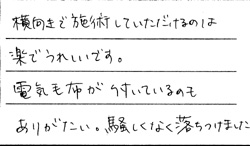 横向きで施術していただけるのは
楽でうれしいです。
電気毛布が付いているのも
ありがたい。騒しくなく落ちつけました